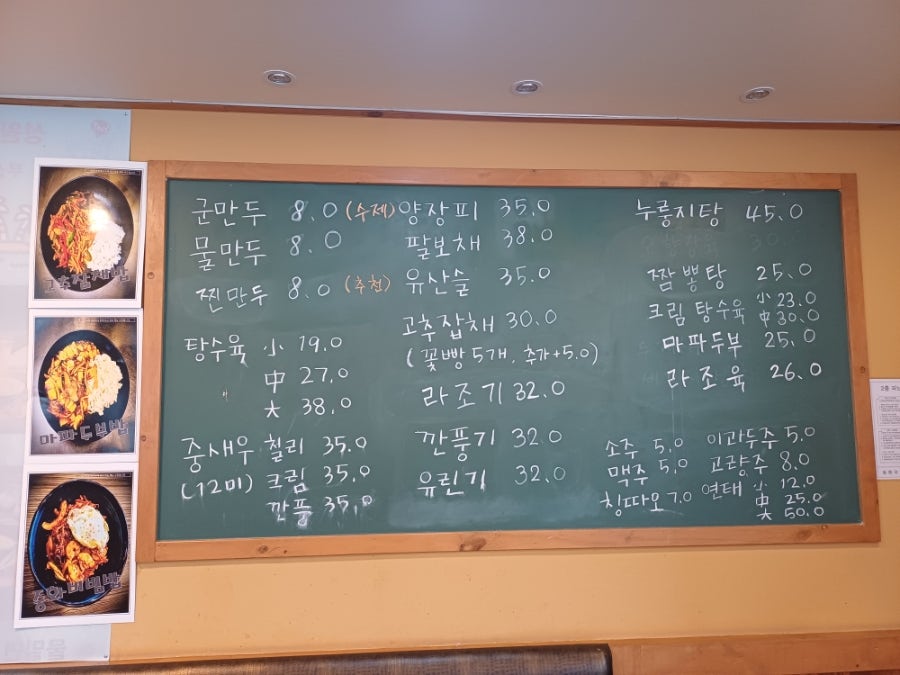 고추잡채밥
마파두부밥
중화비빔밥
군만두 8.0 (수제)
물만두 8.0
찐만두 8.0 (추천)
탕수육 小 19.0
中 27.0
大 38.0
중새우 칠리 35.0
(12미) 크림 35.0
깐풍 35.0
양장피 35.0
팔보채 38.0
유산슬 35.0
고추잡채 30.0
(꽃빵 5개, 추가+5.0)
라조기 32.0
깐풍기 32.0
유린기 32.0
누룽지탕 45.0
짬뽕탕 25.0
크림 탕수육 小 23.0
中 30.0
마파두부 25.0
라조육 26.0
소주 5.0 이과두주 5.0
맥주 5.0 고량주 8.0
칭따오 7.0 연태 小 12.0
中 25.0
大 50.0